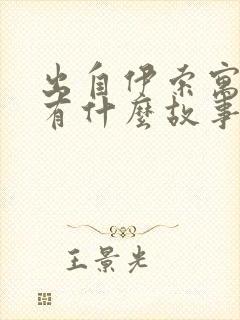 出自伊索寓
有什麼故事
王景光